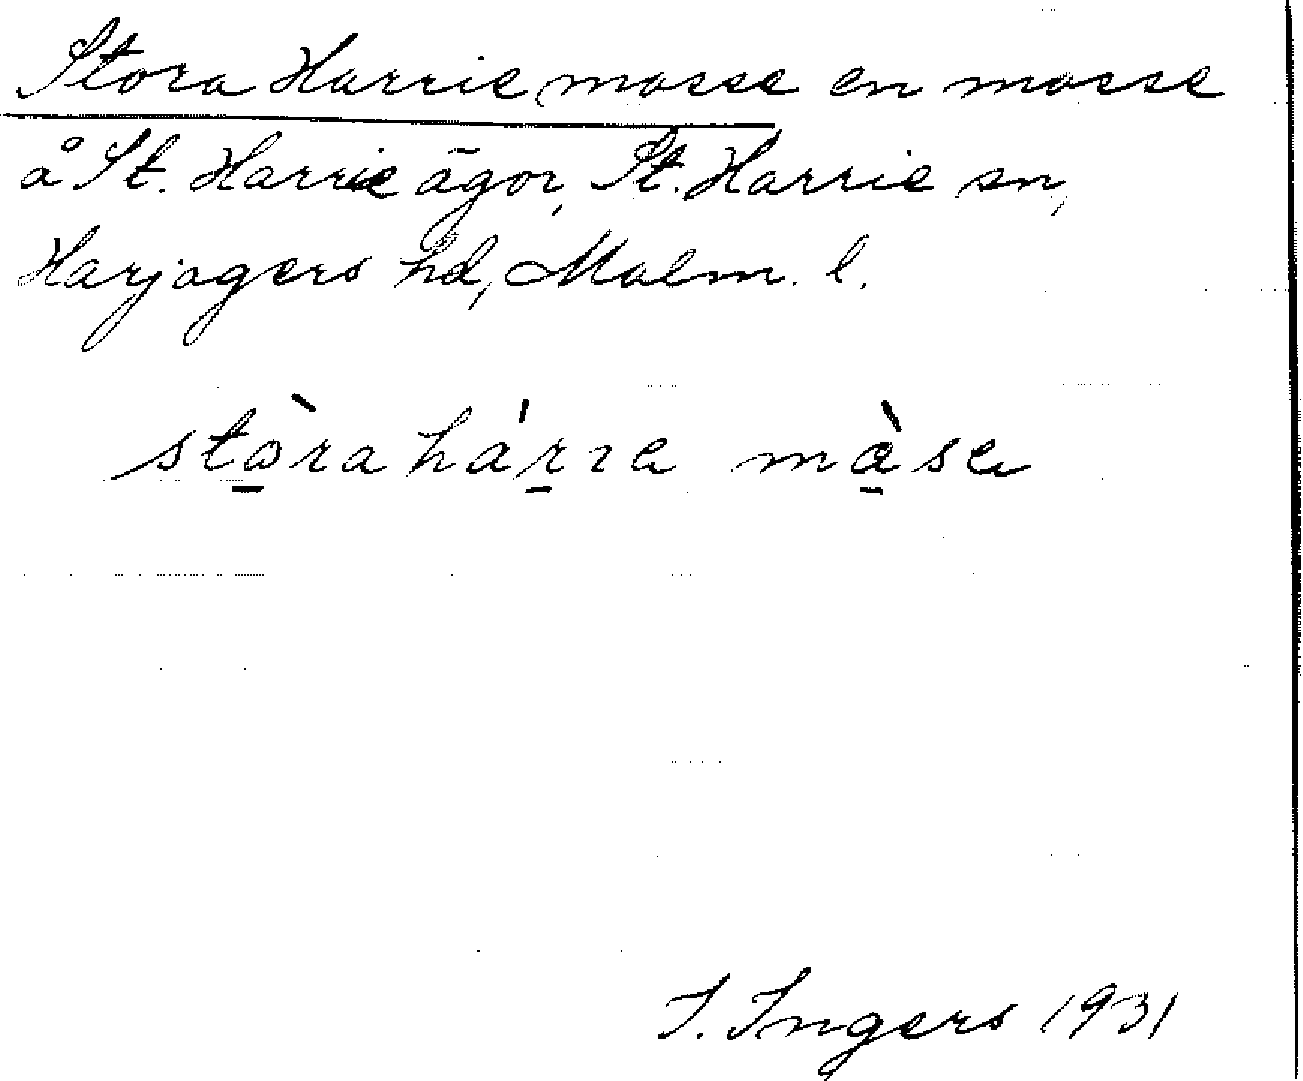 Stora Harrie mosse en mosse
å St. Harrie ägor, St. Harrie sn,
Harjagers hd, Malm. l.
stòra hár̠re mòse
I. Ingers 1931